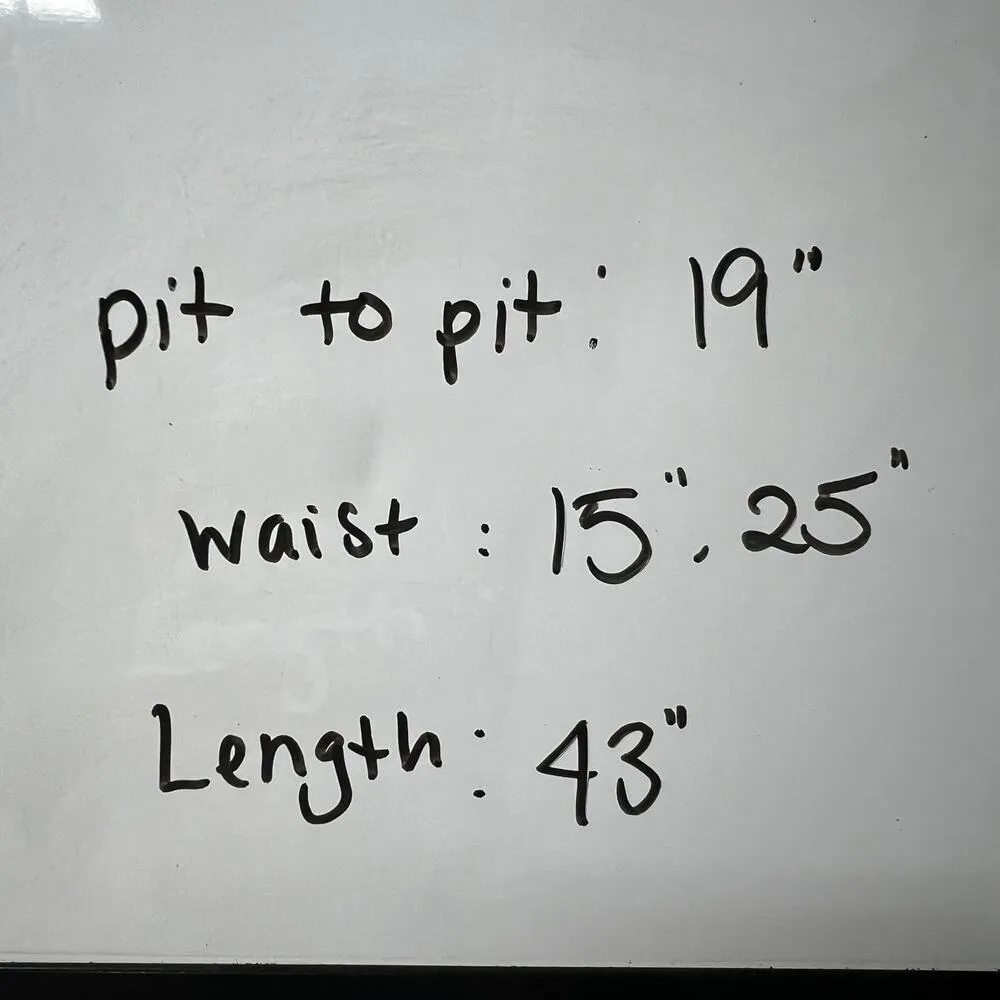 pit to pit: 19"
waist: 15", 25"
Length: 43"